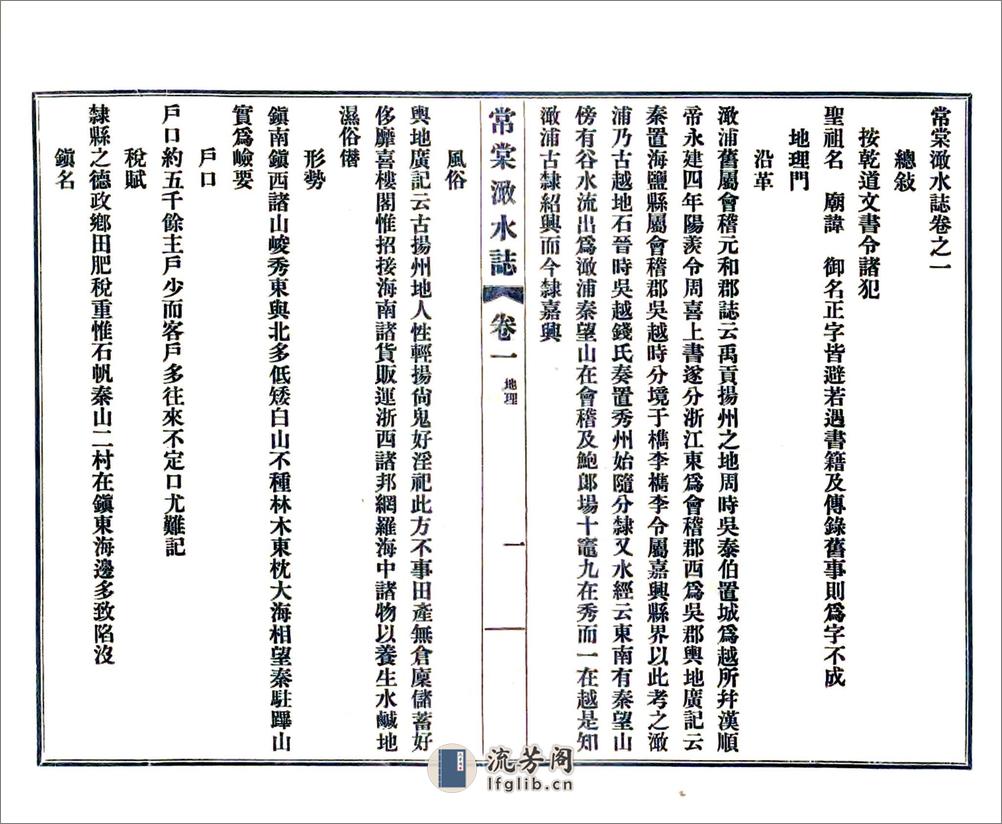 常棠澉水誌卷之一
總敍
按乾道文書令諸犯
聖祖名　廟諱　御名正字皆避若遇書籍及傳錄舊事則爲字不成
地理門
沿革
澉浦舊屬會稽元和郡誌云禹貢揚州之地周時吳泰伯置城爲越所幷漢順
帝永建四年陽羨令周喜上書遂分浙江東爲會稽郡西爲吳郡輿地廣記云
秦置海鹽縣屬會稽郡吳越時分境于檇李檇李令屬嘉興縣界以此考之澉
浦乃古越地石晉時吳越錢氏奏置秀州始隨分隸又水經云東南有秦望山
傍有谷水流出爲澉浦秦望山在會稽及鮑郎場十竈九在秀而一在越是知
澉浦古隸紹興而今隸嘉興
常棠澉水誌
卷一
地理
一
風俗
輿地廣記云古揚州地人性輕揚尙鬼好淫祀此方不事田產無倉廩儲蓄好
侈靡喜樓閣惟招接海南諸貨販運浙西諸邦網羅海中諸物以養生水鹹地
濕俗僭
形勢
鎭南鎭西諸山峻秀東與北多低矮白山不種林木東枕大海相望秦駐蹕山
實爲嶮要
戶口
戶口約五千餘主戶少而客戶多往來不定口尤難記
稅賦
隸縣之德政鄉田肥稅重惟石帆秦山二村在鎭東海邊多致陷沒
鎭名
流芳阁
lfglib.cn